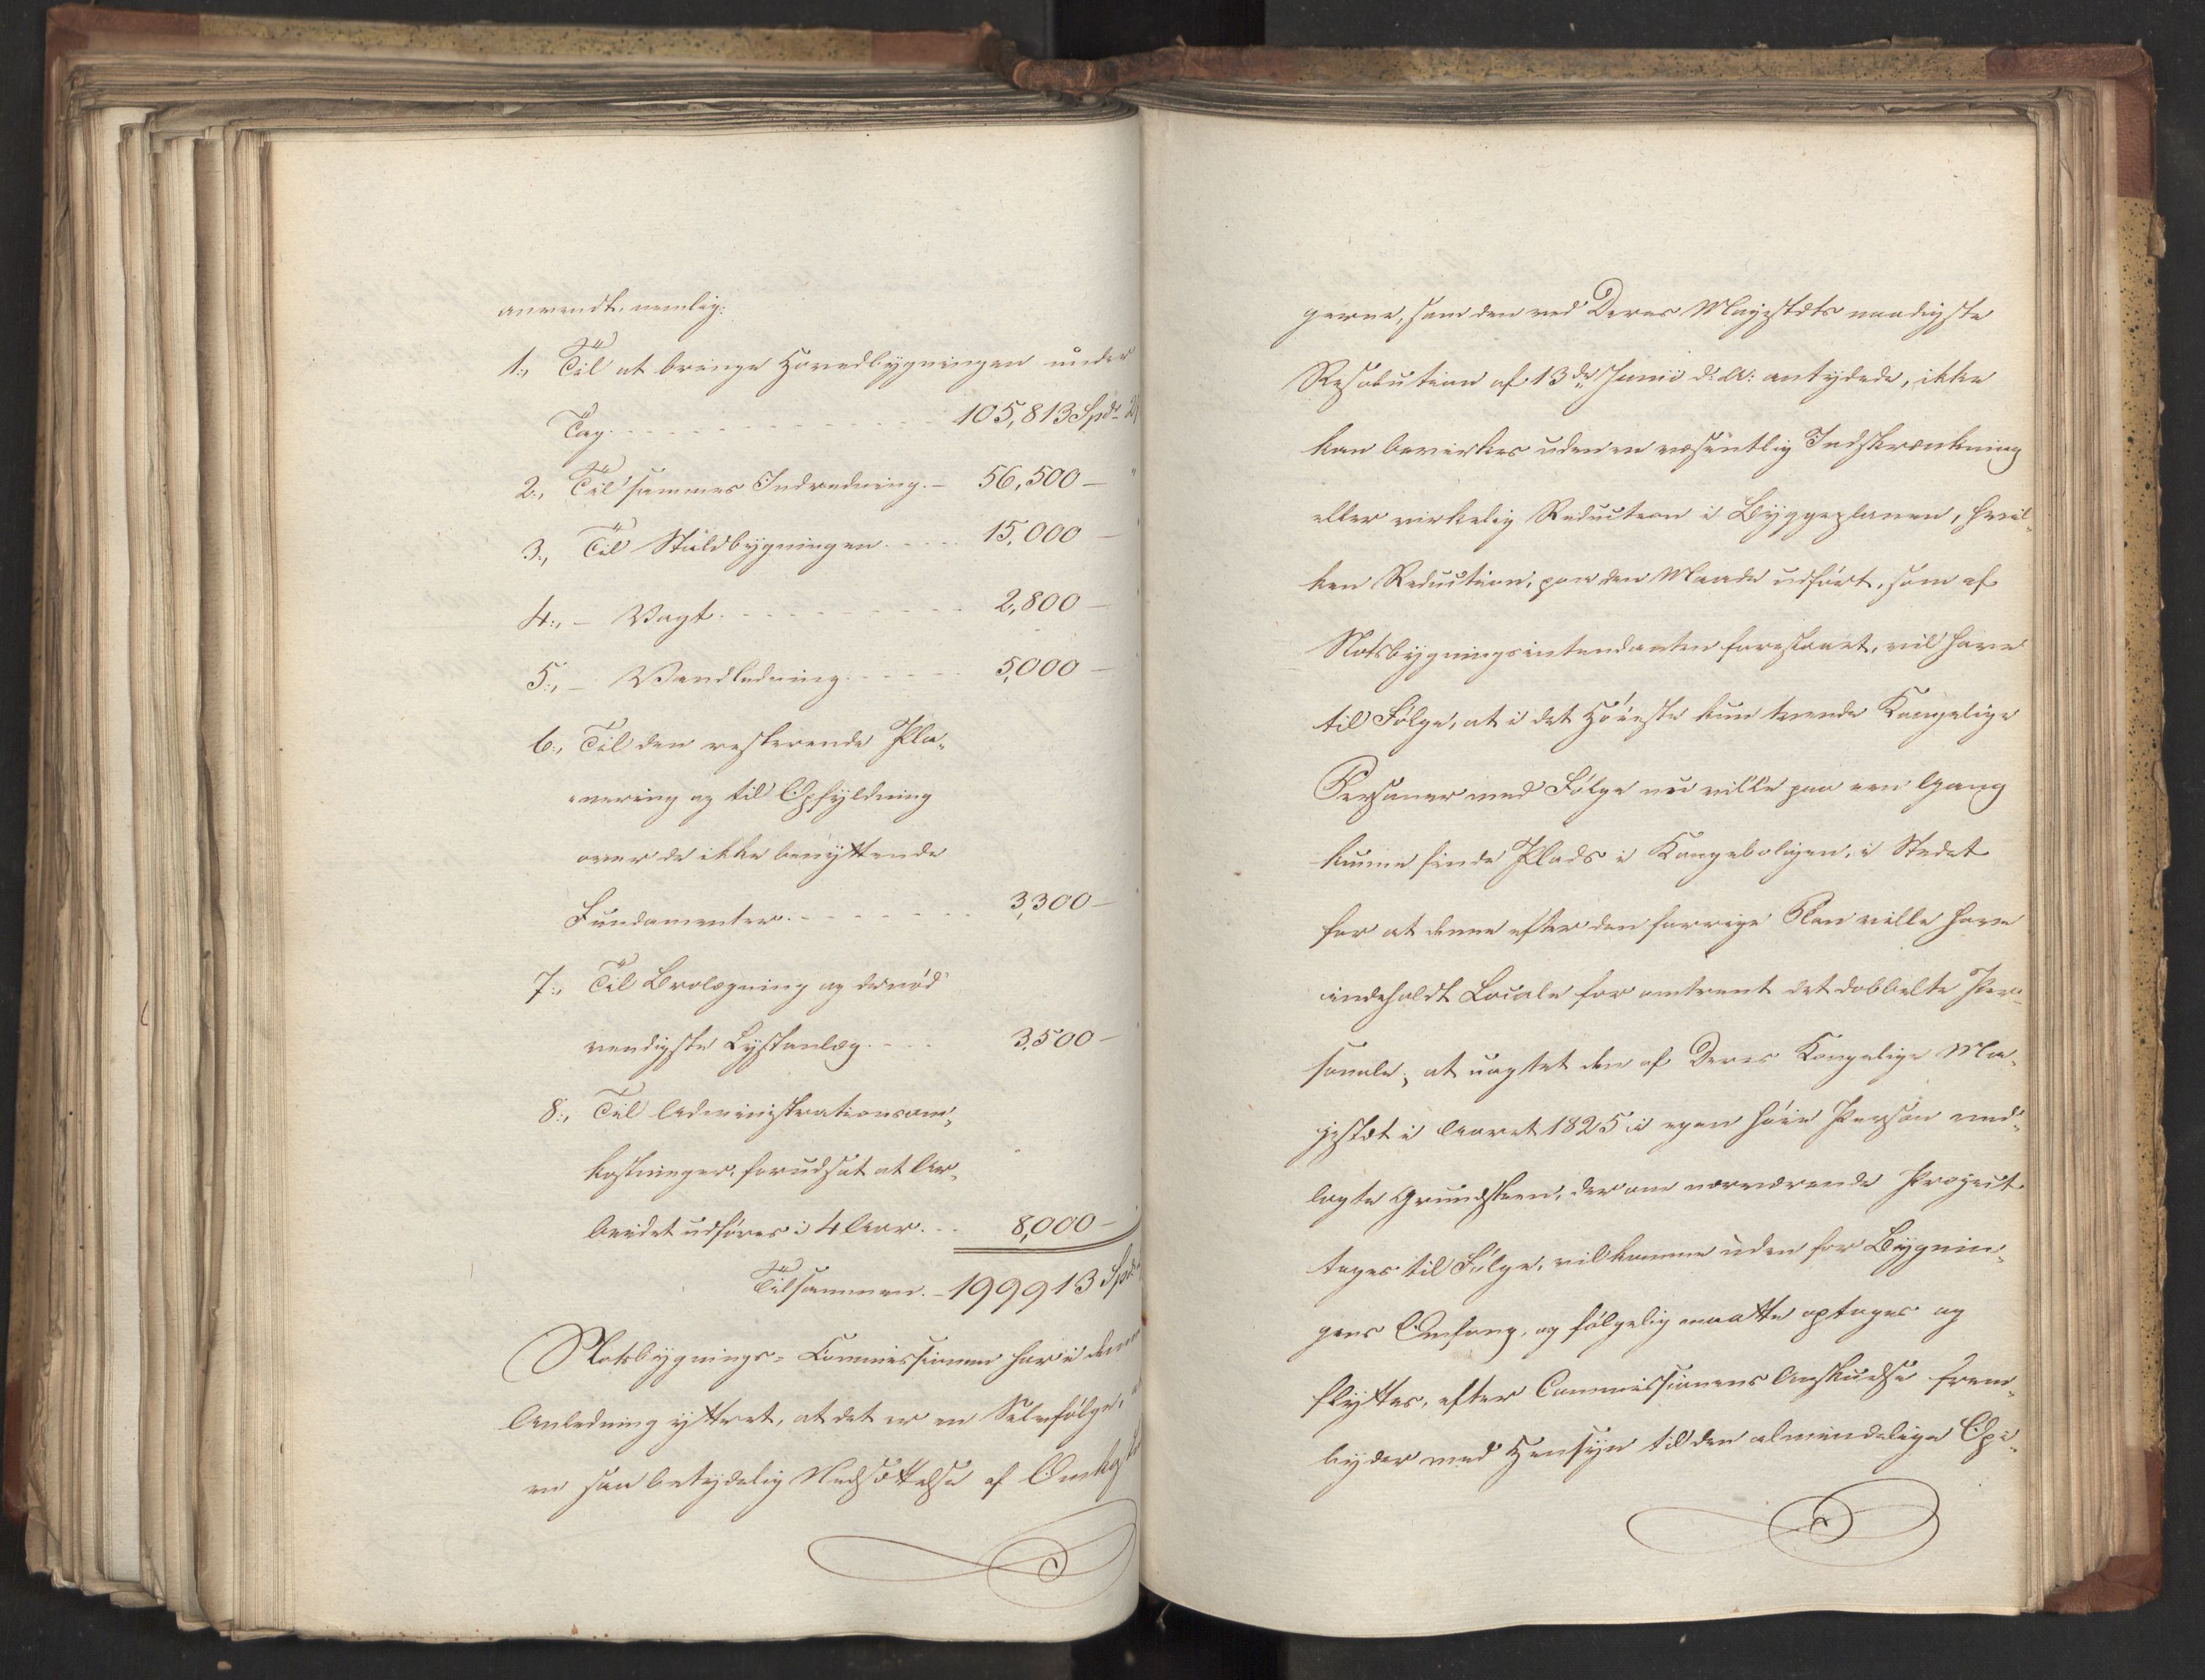 anvendt, nemlig:
1., Til at bringe Hovedbygningen under
Tag. 105,813 Spd.
2., Til sammes Indredning. – 56,500 –
3., Til Staldbygningen. 15,000 –
4., – Vagt. 2,800 –
5., – Vandledning. 5,000 –
6., Til den resterende Pla-
nering og til Opfyldning
over de ikke benyttende
Fundamenter. 3,300 –
7., Til Brolægning og de nød
vendigste Lystanlæg. 3,500 –
8., Til Administrationsom-
kostninger, forudsat at Ar-
beidet udføres i 4 Aar. 8,000 –
Tilsammen. – 199913 Spd.
Slotsbygnings-Commissionen har i denne
Anledning yttret, at det er en Selvfølge,
en saa betydelig Nedsættelse af
gerne, som den ved Deres Majestæts naadigste
Resolution af 13de Junii d: A: antydede, ikke
kan bevirkes uden en væsentlig Indskrænkning
eller virkelig Reduction i Byggeplanen, hvil-
ken Reduction, paa den Maade udført, som af
Slotsbygningsintendanten foreslaaet, vil have
til Følge, at i det Høieste kun tvende Kongelige
Personer med Følge nu ville paa een Gang
kunne finde Plads i Kongeboligen, i Stedet
for at denne efter den forrige Plan ville have
indeholdt Locale for omtrent det dobbelte Per-
sonale; at uagtet den af Deres Kongelige Ma-
jestæt i Aaret 1825 i egen høie Person ned-
lagte Grundsteen, der om nærværende Project
tages til Følge, vil komme uden for Bygnin-
gens Omfang, og følgelig maatte optages og
flyttes, efter Commissionens Anskuelse frem-
byder med Hensyn til den almindelige Opi-